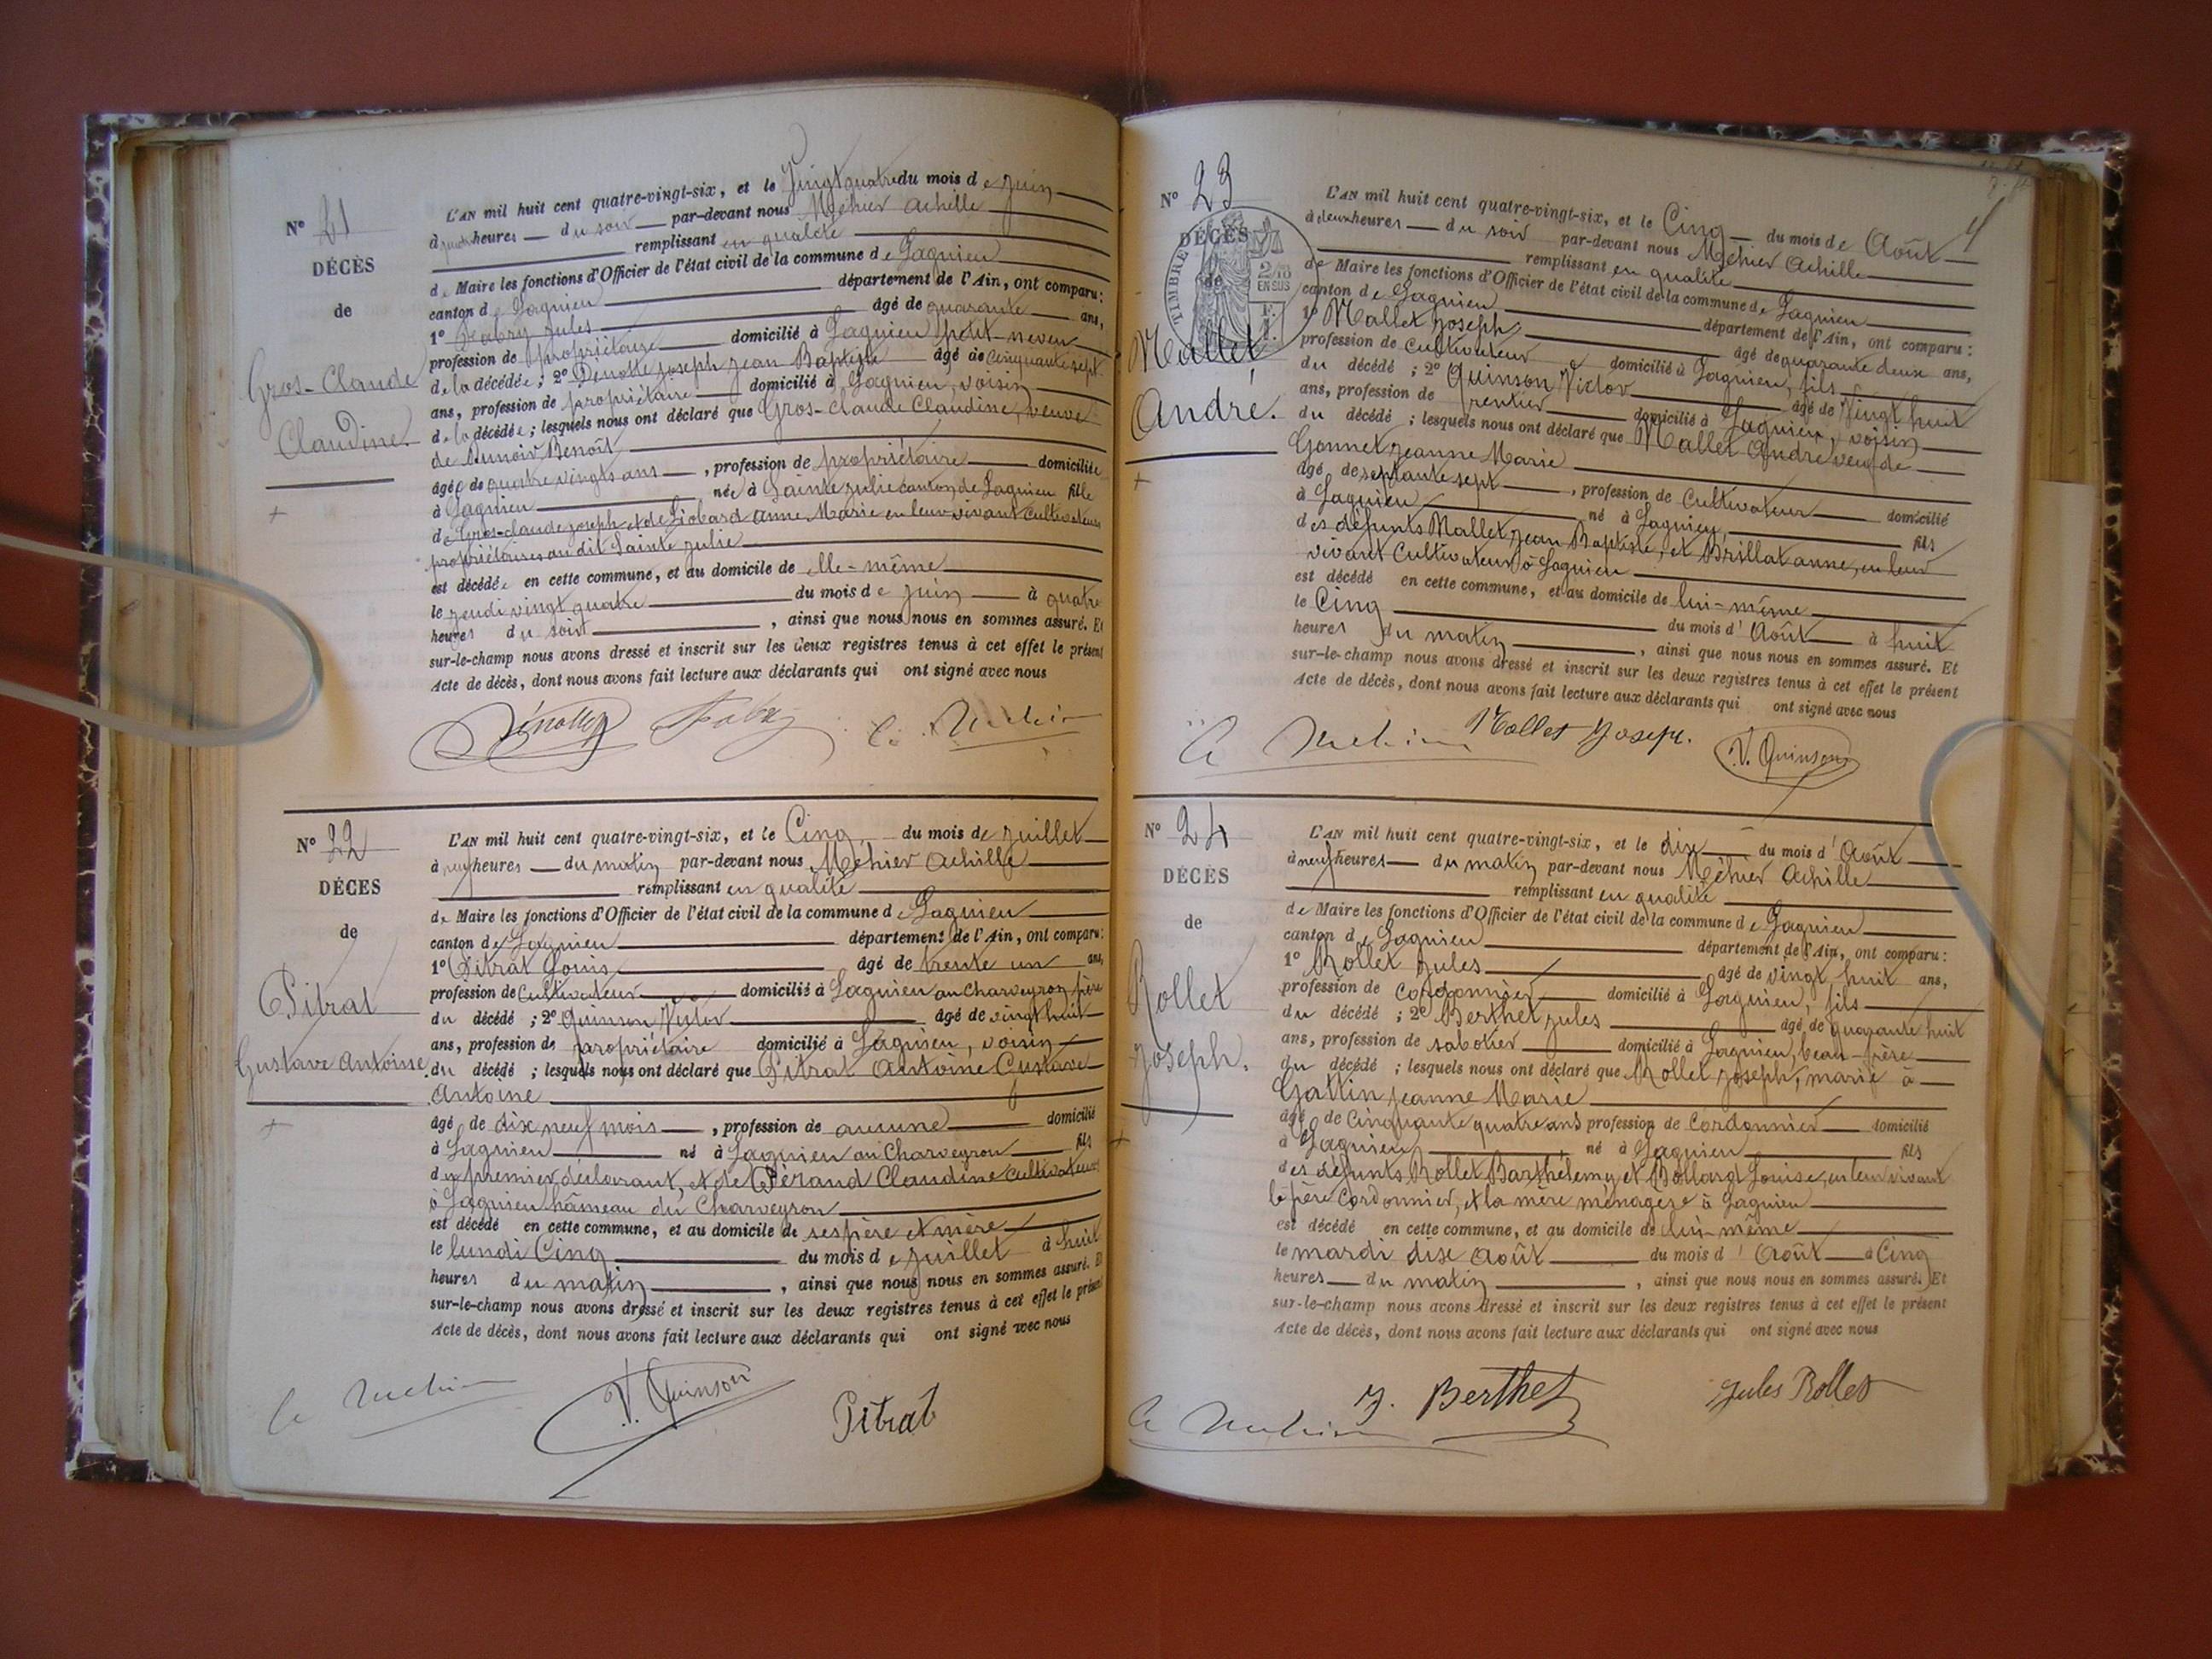 N° 21
DÉCÈS
de
Gros-Claude
Claudine
L'AN mil huit cent quatre-vingt-six, et le Vingt quatre du mois de Juin
à heures du soir par-devant nous Méhier Achille
remplissant en qualité
de Maire les fonctions d'Officier de l'état civil de la commune de Lagnieu
canton de Lagnieu département de l'Ain, ont comparu:
1° Fabry Jules âgé de quarante ans,
profession de propriétaire domicilié à Lagnieu, petit-neveu
de la décédée; 2° Dénolle Joseph Jean Baptiste âgé de cinquante sept
ans, profession de propriétaire domicilié à Lagnieu, voisin
de la décédée; lesquels nous ont déclaré que Gros-Claude Claudine, veuve
de Benoît
âgée de quatre vingts ans, profession de propriétaire domiciliée
à Lagnieu née à Sainte Julie canton de Lagnieu fille
de Gros-Claude Joseph et de Liobard Anne Marie en leur vivant Cultivateurs
propriétaires au dit Sainte Julie
est décédée en cette commune, et au domicile de elle-même
le jeudi vingt quatre du mois de Juin à quatre
heures du soir, ainsi que nous nous en sommes assuré. Et
sur-le-champ nous avons dressé et inscrit sur les deux registres tenus à cet effet le présent
Acte de décès, dont nous avons fait lecture aux déclarants qui ont signé avec nous
Dénolle Fabry A. Méhier
N° 22
DÉCES
de
Pitrat
Gustave Antoine
L'AN mil huit cent quatre-vingt-six, et le Cinq du mois de Juillet
à neuf heures du matin par-devant nous Méhier Achille
remplissant en qualité
de Maire les fonctions d'Officier de l'état civil de la commune de Lagnieu
canton de Lagnieu département de l'Ain, ont comparu:
1° Pitrat Louis âgé de trente un ans,
profession de Cultivateur domicilié à Lagnieu au Charveyron, père
du décédé; 2° Quinson Victor âgé de vingt huit
ans, profession de propriétaire domicilié à Lagnieu, voisin
du décédé; lesquels nous ont déclaré que Pitrat Antoine Gustave
Antoine
âgé de dix neuf mois, profession de aucune domicilié
à Lagnieu né à Lagnieu au Charveyron fils
du premier déclarant, et de Pérand Claudine Cultivateurs
à Lagnieu hâmeau du Charveyron
est décédé en cette commune, et au domicile de ses père et mère
le lundi Cinq du mois de Juillet à huit
heures du matin, ainsi que nous nous en sommes assuré. Et
sur-le-champ nous avons dressé et inscrit sur les deux registres tenus à cet effet le présent
Acte de décès, dont nous avons fait lecture aux déclarants qui ont signé avec nous
A. Méhier V. Quinson Pitrat
N° 23
DÉCÈS
de
TIMBRE
2/10 EN SUS
Mallet
André.
L'AN mil huit cent quatre-vingt-six, et le Cinq du mois de Août
à deux heures du soir par-devant nous Méhier Achille
remplissant en qualité
de Maire les fonctions d'Officier de l'état civil de la commune de Lagnieu
canton de Lagnieu département de l'Ain, ont comparu:
1° Mallet Joseph, âgé de quarante deux ans,
profession de Cultivateur domicilié à Lagnieu, fils
du décédé; 2° Quinson Victor âgé de Vingt huit
ans, profession de rentier domicilié à Lagnieu, voisin
du décédé; lesquels nous ont déclaré que Mallet André veuf de
Gonnet Jeanne Marie
âgé de septante sept, profession de Cultivateur domicilié
à Lagnieu né à Lagnieu, fils
des défunts Mallet Jean Baptiste, et Brillat anne, en leur
vivant Cultivateurs à Lagnieu
est décédé en cette commune, et au domicile de lui-même
le Cinq du mois d'Août à huit
heures du matin, ainsi que nous nous en sommes assuré. Et
sur-le-champ nous avons dressé et inscrit sur les deux registres tenus à cet effet le présent
Acte de décès, dont nous avons fait lecture aux déclarants qui ont signé avec nous
A. Méhier Mallet Joseph. V. Quinson
N° 24
DÉCÈS
de
Rollet
Joseph.
L'AN mil huit cent quatre-vingt-six, et le dix du mois d'Août
à neuf heures du matin par-devant nous Méhier Achille
remplissant en qualité
de Maire les fonctions d'Officier de l'état civil de la commune de Lagnieu
canton de Lagnieu département de l'Ain, ont comparu:
1° Rollet Jules âgé de vingt huit ans,
profession de Cordonnier domicilié à Lagnieu, fils
du décédé; 2° Berthet Jules âgé de quarante huit
ans, profession de sabotier domicilié à Lagnieu, beau-frère
du décédé; lesquels nous ont déclaré que Rollet Joseph, marié à
Gattin Jeanne Marie
âgé de Cinquante quatre ans profession de Cordonnier domicilié
à Lagnieu né à Lagnieu fils
des défunts Rollet Barthélemy et Bollard Louise, en leur vivant
le père Cordonnier, et la mère ménagère à Lagnieu
est décédé en cette commune, et au domicile de lui-même
le mardi dix Août du mois d'Août à Cinq
heures du matin, ainsi que nous nous en sommes assuré. Et
sur-le-champ nous avons dressé et inscrit sur les deux registres tenus à cet effet le présent
Acte de décès, dont nous avons fait lecture aux déclarants qui ont signé avec nous
A. Méhier J. Berthet Jules Rollet